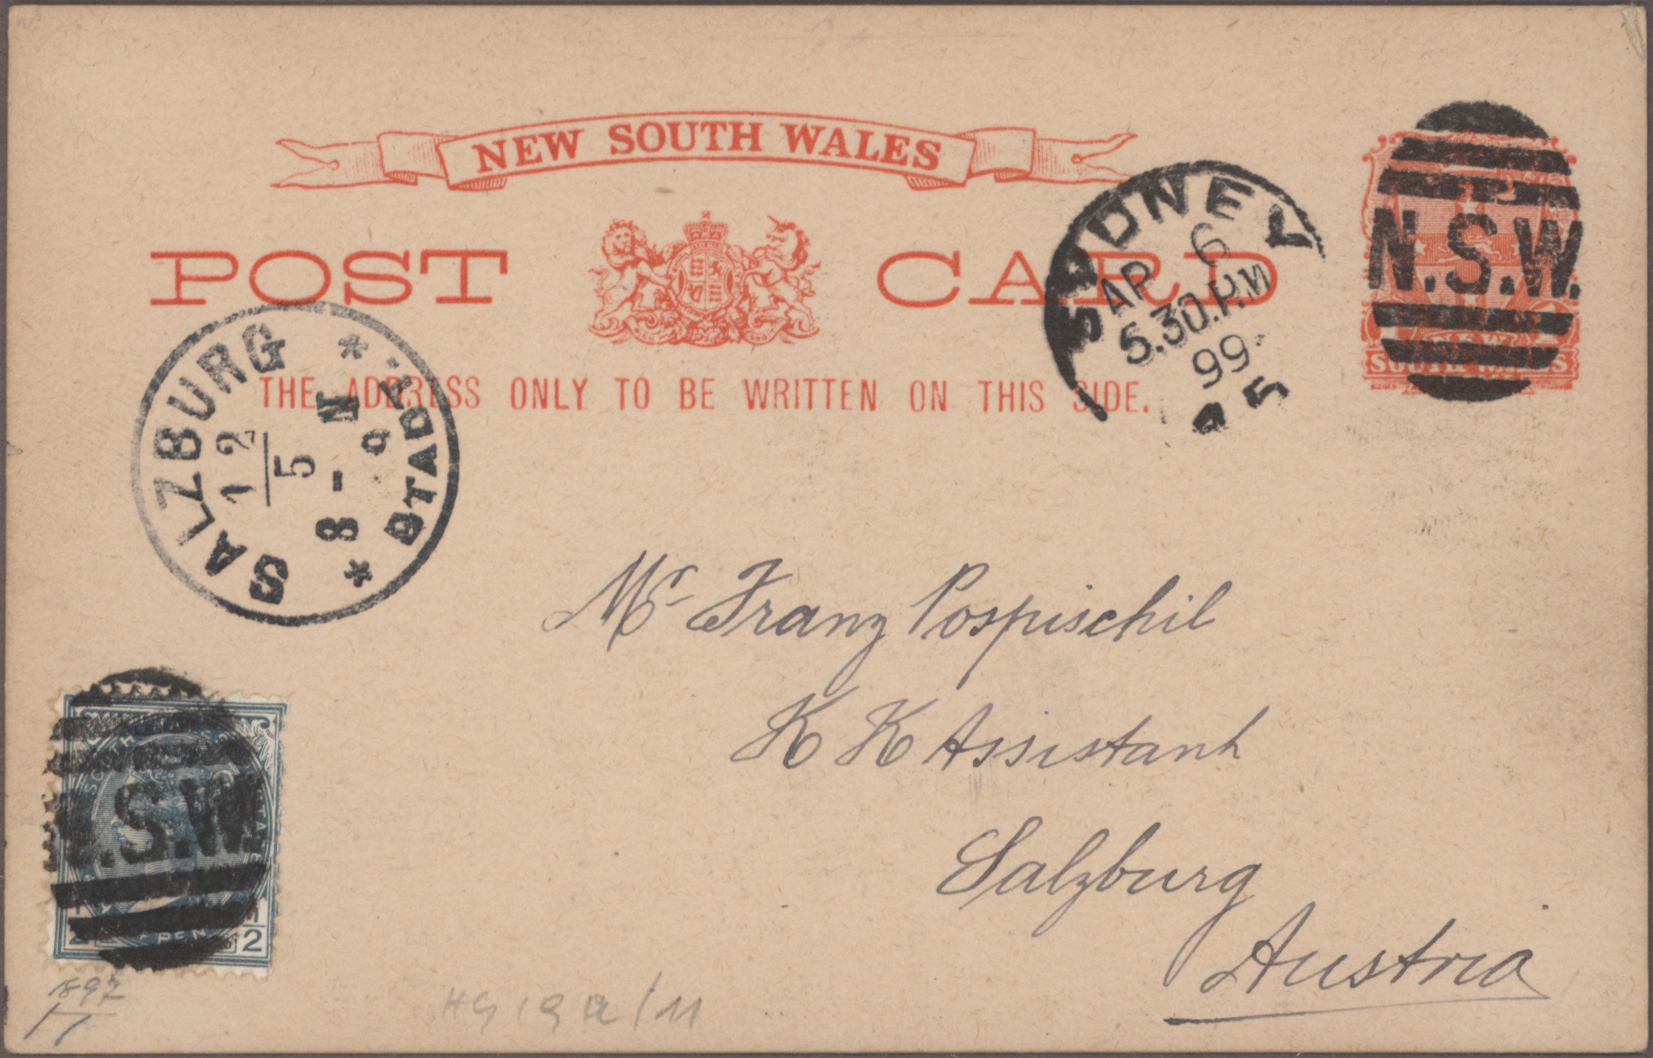 NEW SOUTH WALES
POST CARD
THE ADDRESS ONLY TO BE WRITTEN ON THIS SIDE.
SYDNEY
AP 6
5.30.P.M
99
5
N.S.W.
SOUTH WALES
SALZBURG
12
5
8-9 N
* STADT *
Mr Franz Pospischil
K K Assistant
Salzburg
Austria
N.S.W.
PEN
2
1897
HG 19a/11